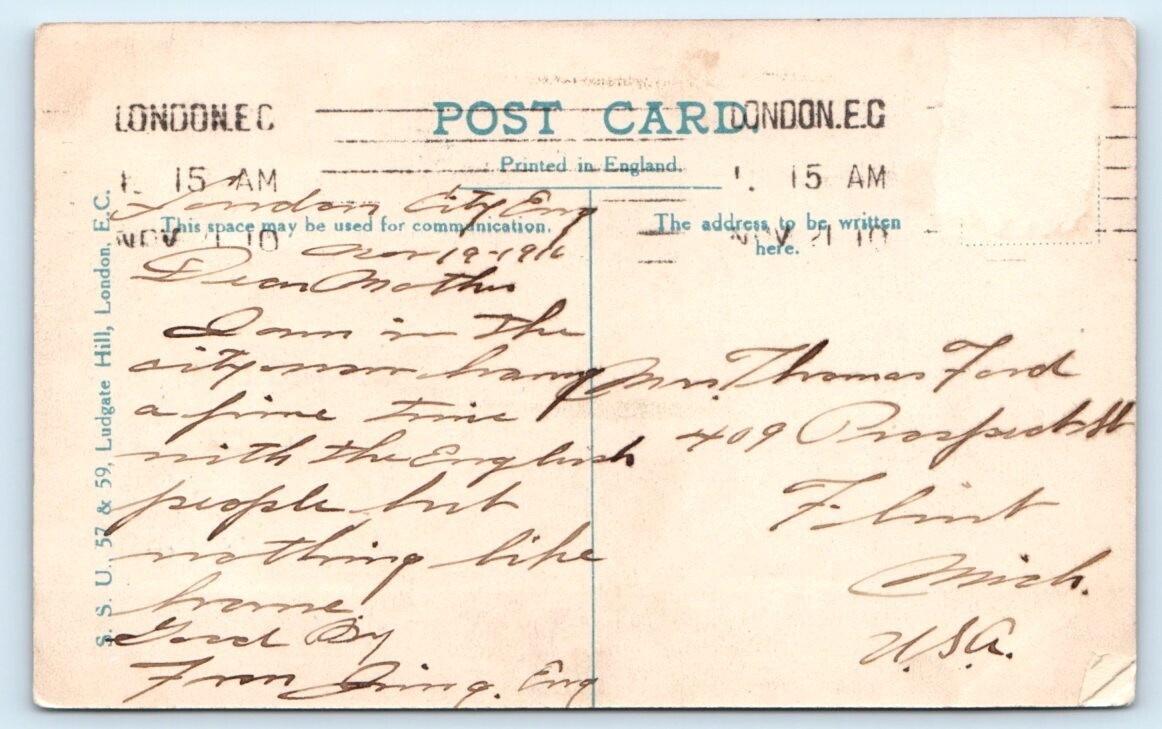 LONDON.E.C
POST CARD
LONDON.E.C
Printed in England.
15 AM
15 AM
NOV 21 10
NOV 21 10
S. S. U., 57 & 59, Ludgate Hill, London, E.C.
This space may be used for communication.
The address to be written
here.
London City, Eng
Nov 19-1910
Dear Mother
I am in the
city now having
a fine time
with the English
people but
nothing like
home.
Good By
From Eng
Mrs. Thomas Ford
409 Prospect St
Flint
Mich.
U.S.A.